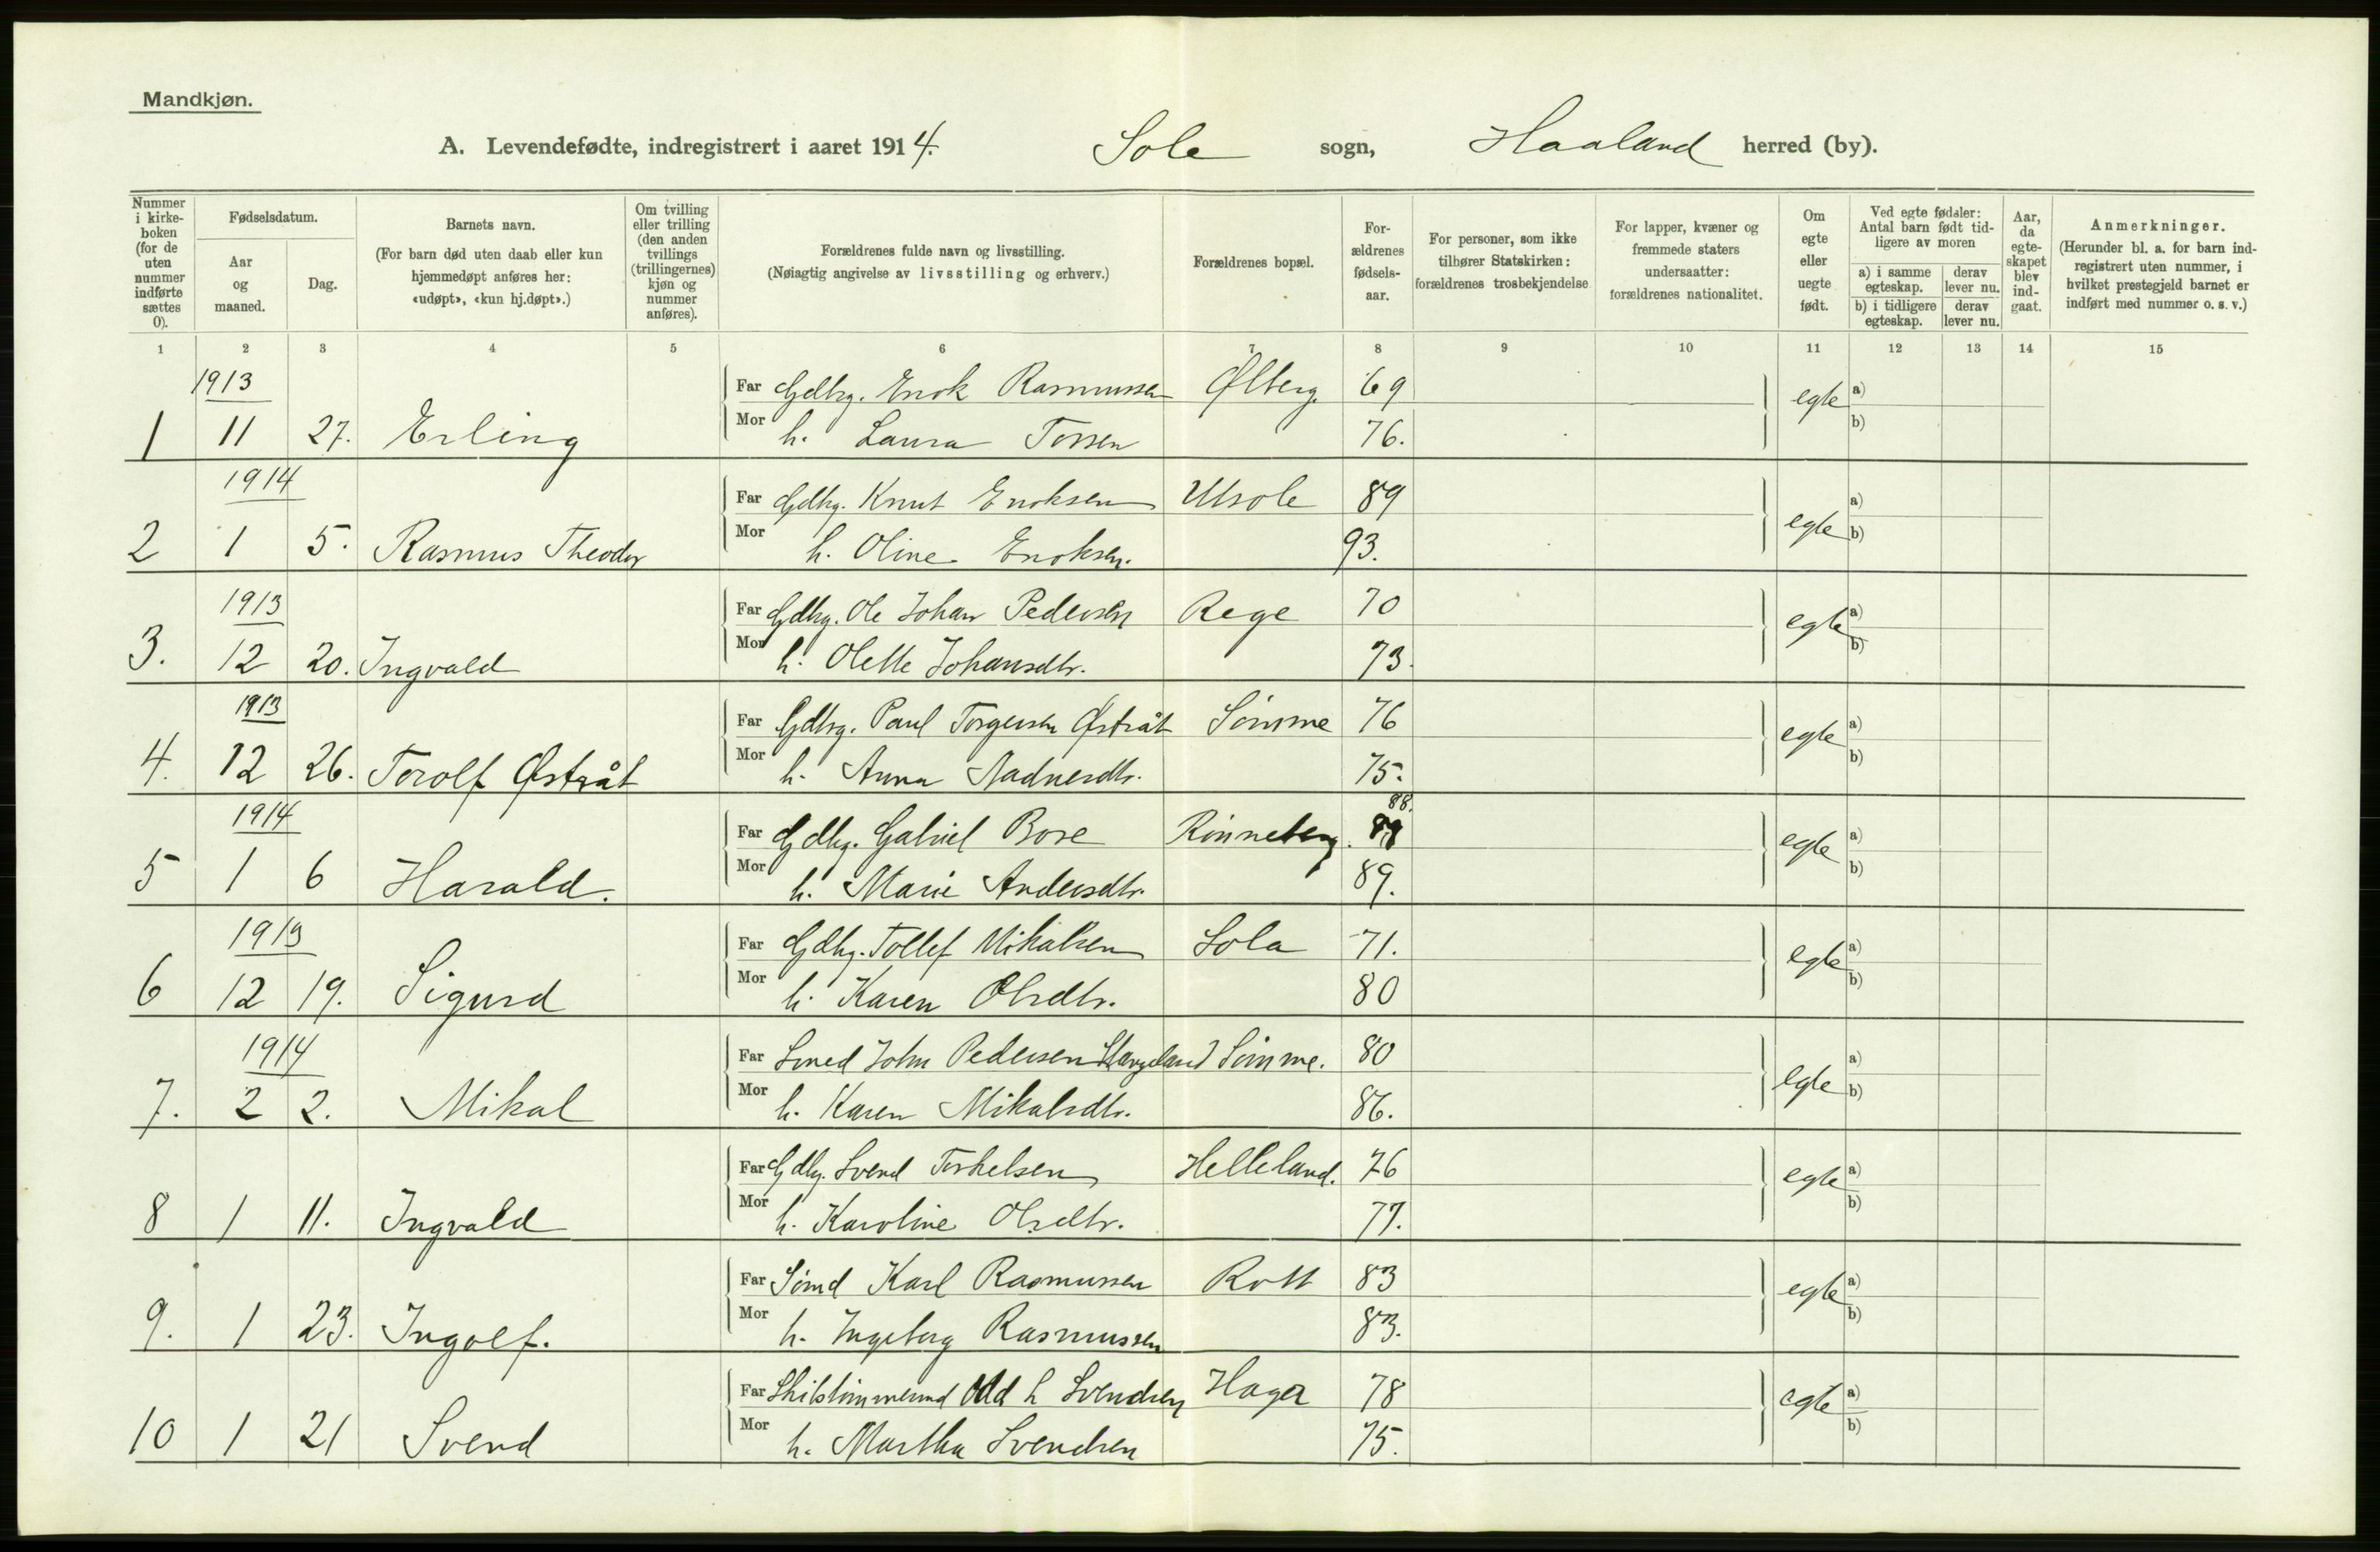 Mandkjøn.
A. Levendefødte, indregistrert i aaret 1914. Sole sogn, Haaland herred (by).
Nummer i kirke-boken (for de uten nummer indførte sættes 0).
Fødselsdatum.
Aar og maaned.
Dag.
Barnets navn.
(For barn død uten daab eller kun hjemmedøpt anføres her: «udøpt», «kun hj.døpt».)
Om tvilling eller trilling (den anden tvillings (trillingernes) kjøn og nummer anføres).
Forældrenes fulde navn og livsstilling.
(Nøiagtig angivelse av livsstilling og erhverv.)
Forældrenes bopæl.
For-ældrenes fødsels-aar.
For personer, som ikke tilhører Statskirken: forældrenes trosbekjendelse
For lapper, kvæner og fremmede staters undersaatter: forældrenes nationalitet.
Om egte eller uegte født.
Ved egte fødsler: Antal barn født tid-ligere av moren
a) i samme egteskap.
derav lever nu.
b) i tidligere egteskap.
derav lever nu.
Aar, da egte-skapet blev ind-gaat.
Anmerkninger.
(Herunder bl. a. for barn ind-registrert uten nummer, i hvilket prestegjeld barnet er indført med nummer o. s. v.)
1 2 3 4 5 6 7 8 9 10 11 12 13 14 15
1913
Far Gdbrg. Enok Rasmussen Ølberg. 69 egte a)
1 11 27. Erling Mor h. Laura Torsen 76. b)
1914
Far Gdbrg. Knut Enoksen Utsole 89 a)
2 1 5. Rasmus Theodor Mor h. Oline Enoksen. 93. egte b)
1913
Far Gdbrg. Ole Johan Pedersen Rege 70 egte a)
3. 12 20. Ingvald Mor h. Olette Johansdtr. 73. b)
1913
Far Gdbrg. Paul Torgersen Østråt Sømme 76 egte a)
4. 12 26. Torolf Østråt Mor h. Anna Aadnesdtr. 75. b)
1914
88.
Far Gdbrg. Gabriel Bore Rønneberg. egte a)
5 1 6 Harald. Mor h. Marie Andersdtr. 89. b)
1913
Far Gdbrg. Tollef Mikalsen Sola 71. egte a)
6 12 19. Sigurd Mor h. Karen Olsdtr. 80 b)
1914
Far Smed John Pedersen Stangeland Sømme. 80 egte a)
7. 2 2. Mikal Mor h. Karen Mikalsdtr. 86. b)
Far Gdbg. Svend Torkelsen Helleland. 76 egte a)
8 1 11. Ingvald Mor h. Karoline Olsdtr. 77. b)
Far Sømd Karl Rasmussen Rott 83 egte a)
9. 1 23. Ingolf. Mor h. Ingeborg Rasmussen 83. b)
Far Skibstømmermd Odd L Svendsen Haga 78 egte a)
10 1 21 Svend Mor h. Martha Svendsen 75. b)